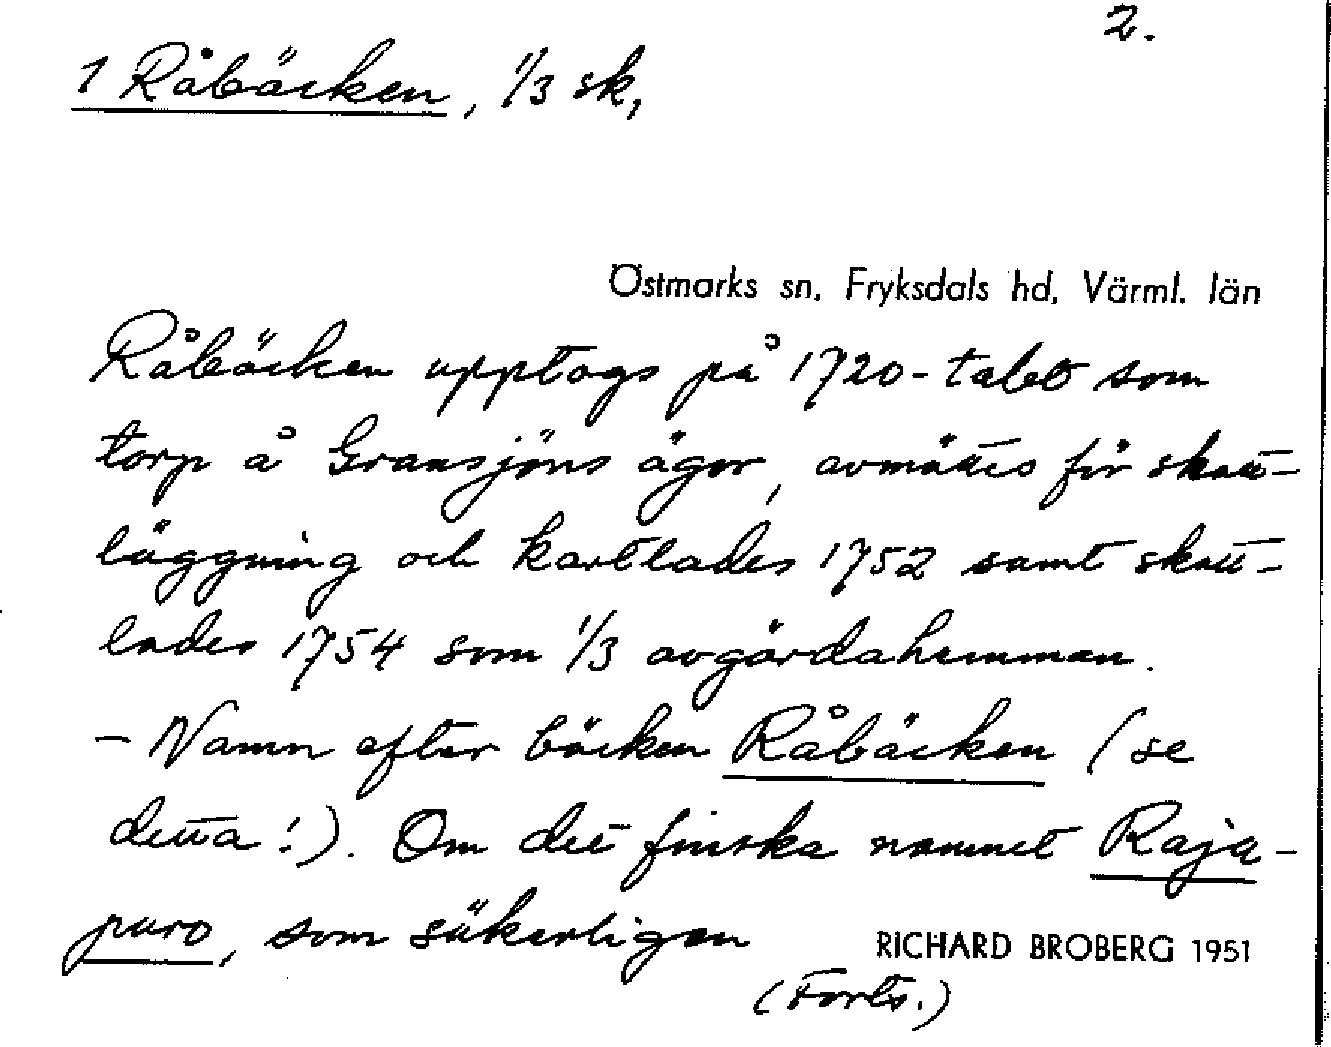 2.
1 Råbäcken, 1/3 sk,
Östmarks sn, Fryksdals hd, Värml. län
Råbäcken upptogs på 1720-talet som
torp å Gransjöns ägor, avmättes för skatt-
läggning och kartlades 1752 samt skatt-
lades 1754 som 1/3 avgärdahemman.
- Namn efter bäcken Råbäcken (se
detta!). Om det finska namnet Raja-
puro, som säkerligen
RICHARD BROBERG 1951
(Forts.)